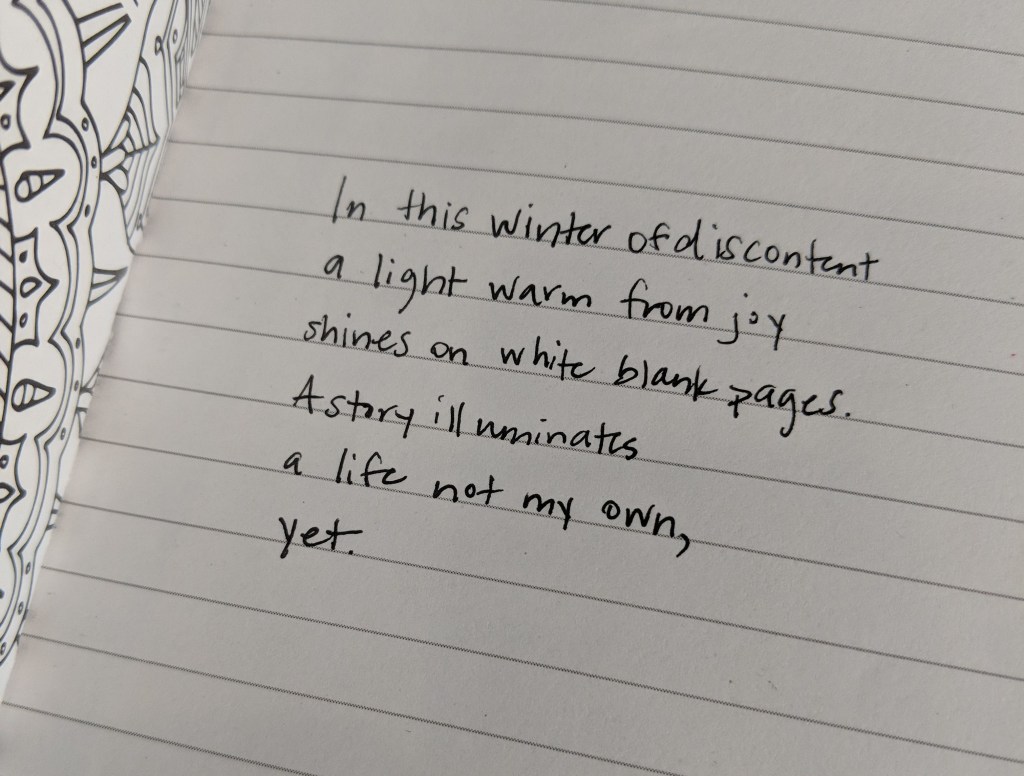 In this winter of discontent
a light warm from joy
shines on white blank pages.
A story illuminates
a life not my own,
yet.